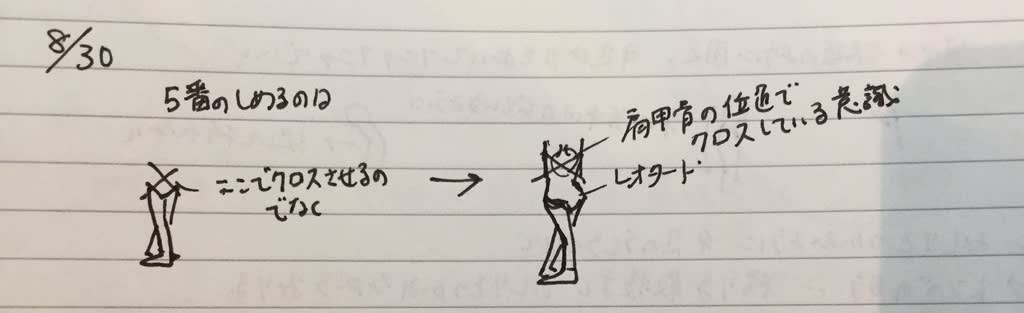 8/30
5番のしめるのは
ここでクロスさせるの
でなく
→
肩甲骨の位置で
クロスしている意識
レオタード